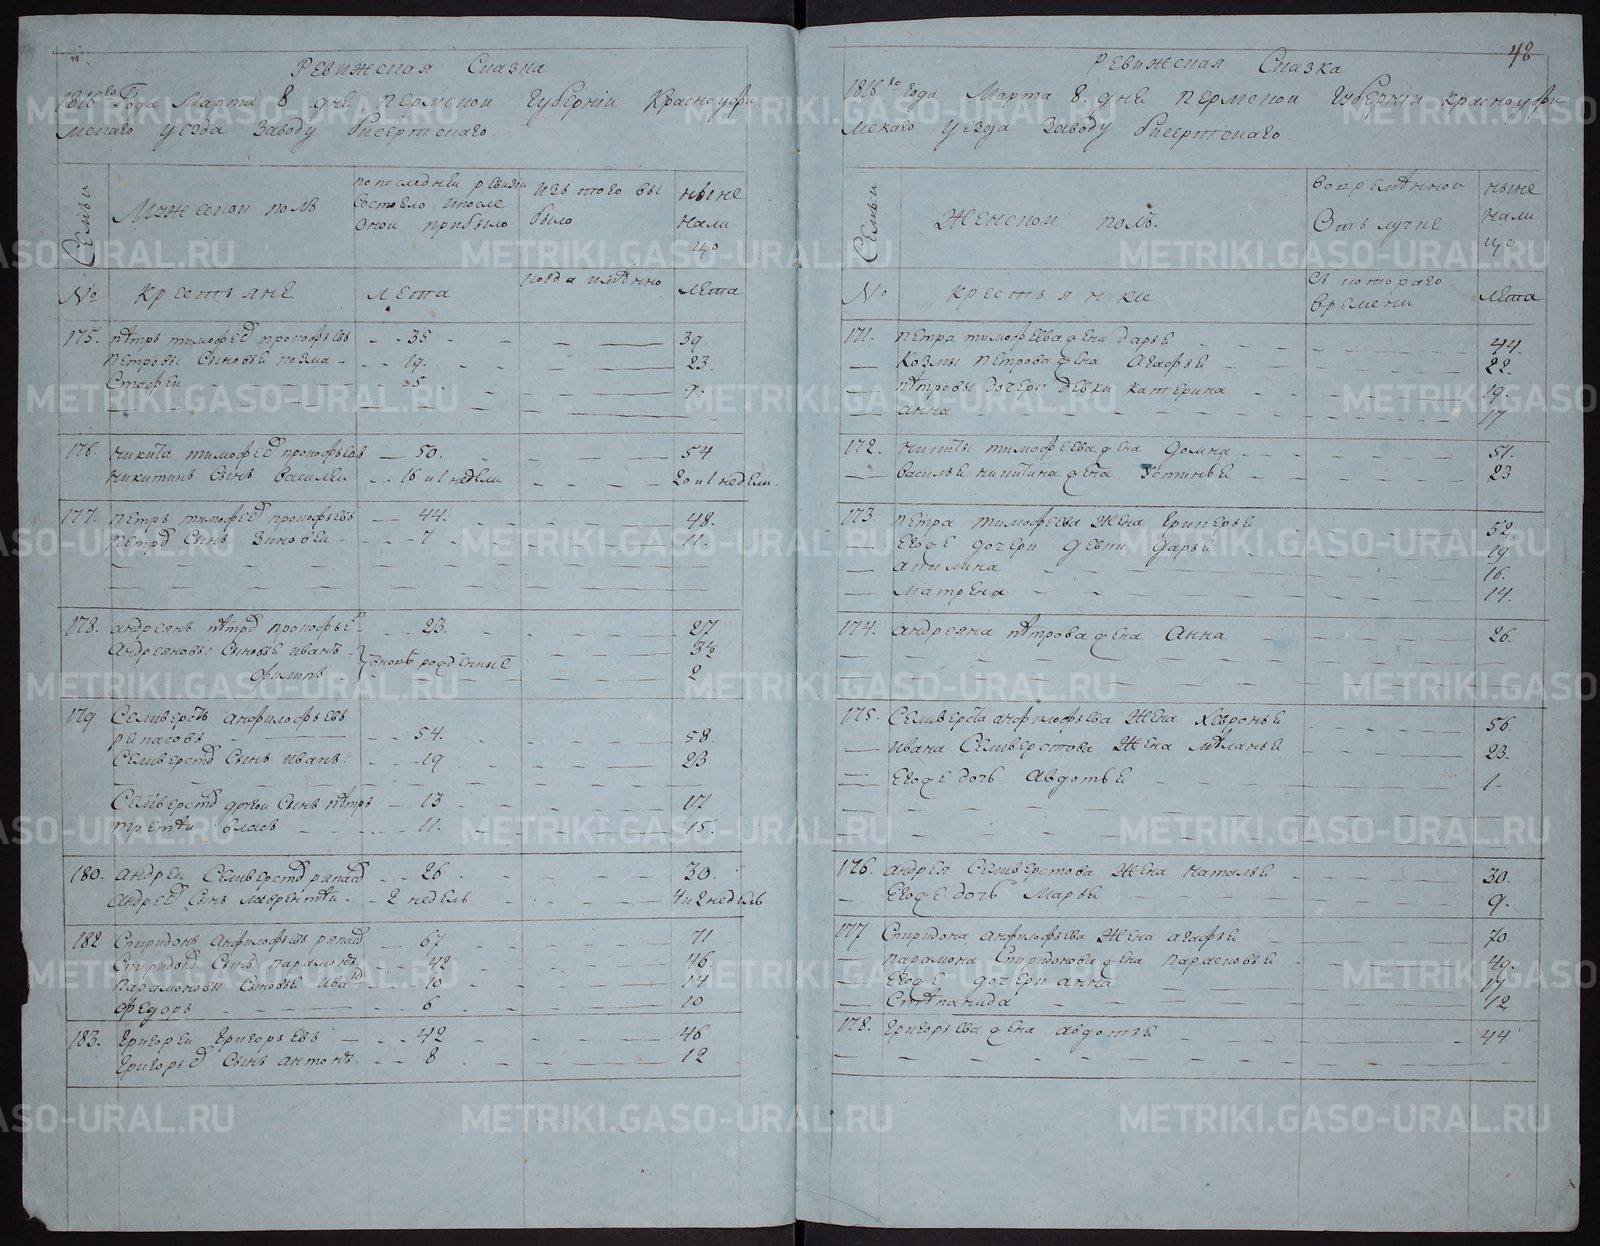 Ревижская Сказка
1816го Года Марта 8 дне Пермской Губернии Красноуфи
мскаго уезда заводу Бисертскаго.
Семьи
Мужескои полъ
по последней ревизии состояло и после оной прибыло
изъ того вы было
ныне нали цо
№
крестьяне
лета
когда имянно
лета
175. Пѣтръ тимофеев прокофьевъ 35 39.
Петровы Сыновье козма 19. 23.
Стафеи 5 9.
176. Никита тимофеев прокофьевъ 50. 54
Никитинъ Сынъ василеи 16 и 1 недели 20 и 1 недели.
177. петръ тимофеев прокофьевъ 44. 48.
петров Сынъ Зиновеи 7 11
178. андреянъ пѣтров прокофьев 23. 27
андреяновы Сыновье иванъ 3½
филипъ вновь рожденные 2
179 Селиверстъ анфилофьевъ
рипасовъ 54. 58.
Селиверстов Сынъ иванъ 19 23
Селиверстов другои Сынъ пѣтръ 13 17
третѣи власъ 11. 15.
180. андреи Селиверстов рипасов 26 30.
андреев Сынъ лаврентѣи 2 недель 4 и 2 недель
182 Спиридонъ анфилофьевъ рипасов 67 71
Спиридонов Сынъ парамонъ 42 46
парамоновы Сыновье иванъ 10 14
федоръ 6 10
183. григореи григорьевъ 42 46
григорьев Сынъ антонъ 8 12
48
Ревижская Сказка
1816го года Марта 8. дне пермской Губернии красноуфи
мскаго уезда заводу бисертскаго.
Семьи
Женскои полъ.
во временнои отълучке
ныне нали цо
№
крестьянки
съ котораго времени
лета
171. петра тимофеева жена дарье 44.
козмы петрова жена Агафье 22
пѣтровы дочери девки катерина 19.
анна 17
172. никиты тимофеева жена домна 51.
василье никитина жена Устинье 23
173 петра тимофеева жена 52
Егоже дочери девки дарье 19
акилина 16.
матрена 14.
174. андреяна пѣтрова жена анна 26.
175. Селиверста анфилофьева жена хевронье 56.
ивана Селиверстова жена мѣланье 23.
Егоже дочь авдотье 1
176. андрея Селиверстова жена наталье 30.
Егоже дочь Марье 9.
177 Спиридона анфилофьева жена агафье 70.
парамона Спиридонова жена парасковье 49.
Егоже дочери анна 17
Стѣпанида 12
178. григорьева жена авдотье 44
METRIKI.GASO-URAL.RU